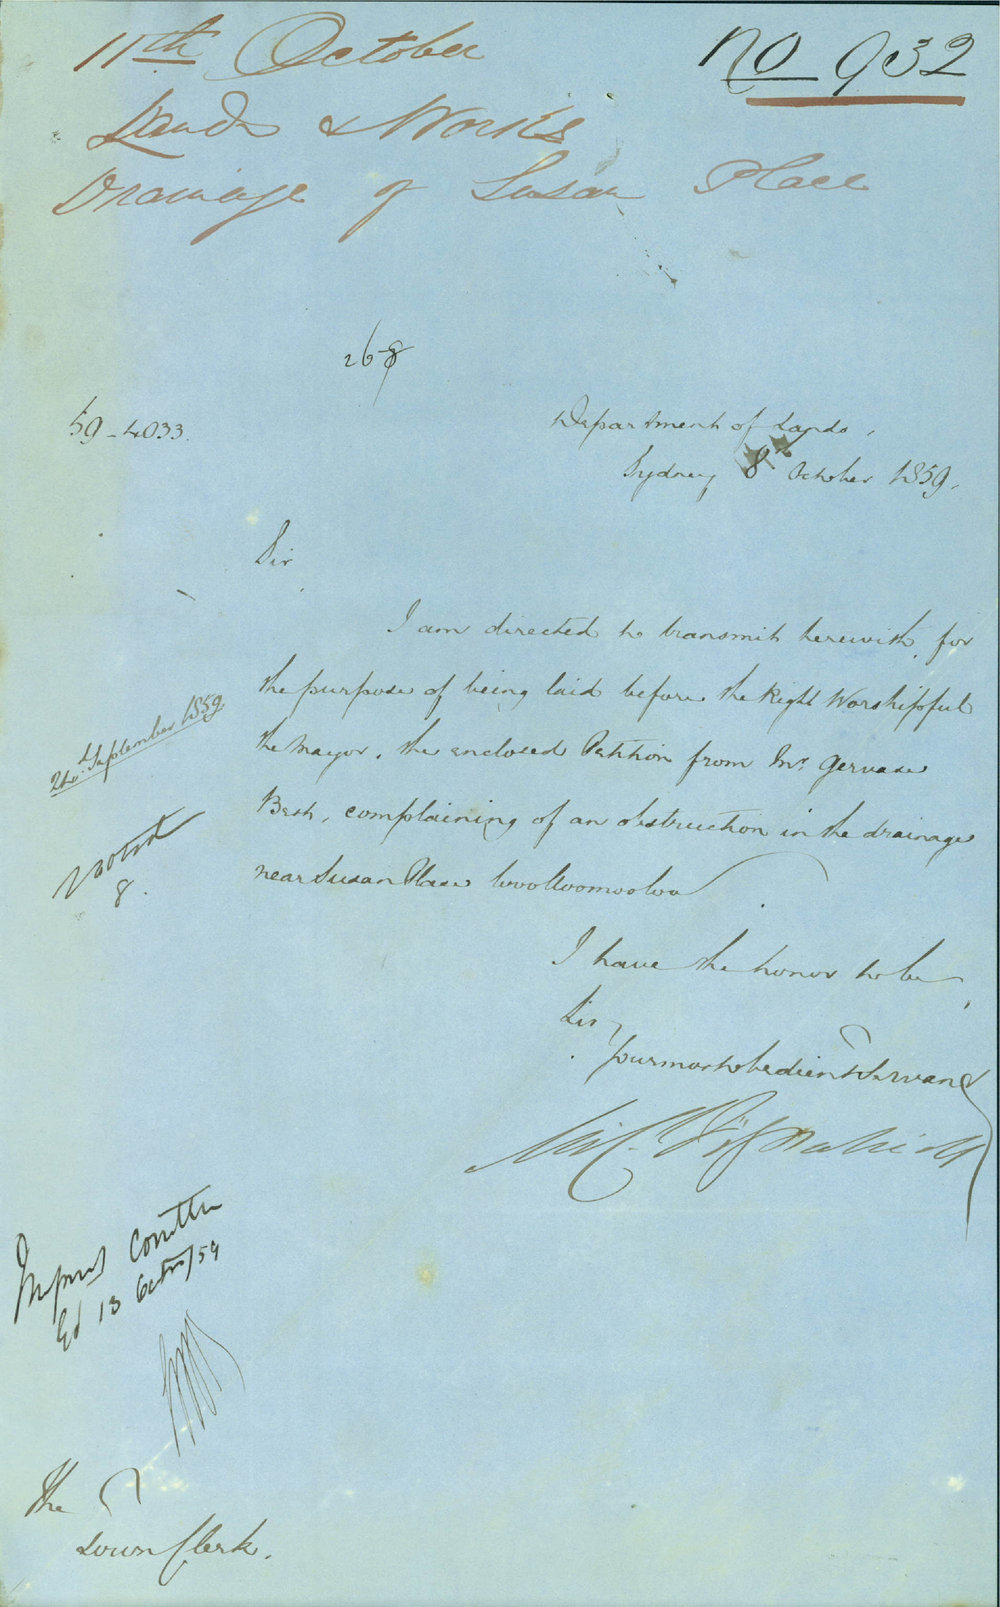 11th October
No 932
Lands & Works
Drainage of Susan Place
268
59-4033.
Department of Lands,
Sydney 8th October 1859.
Sir
I am directed to transmit herewith, for
the purpose of being laid before the Right Worshipful
the Mayor, the enclosed Petition from Mr Gervase
Best, complaining of an obstruction in the drainage
near Susan Place Woolloomooloo
24th September 1859
8.
I have the honor to be
Sir,
Your most obedient Servant
Mic. Fitzpatrick
Commttee
13 Octr/59
The
Town Clerk.